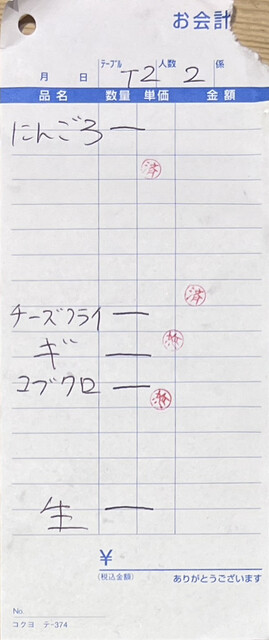 お会計
月 日 テーブル T2 人数 2 係
品名 数量 単価 金額
にんごろ 一
済
済
チーズフライ 一
済
ギ 一
コブクロ 一
済
生 一
¥
(税込金額) ありがとうございます
No.
コクヨ テ-374